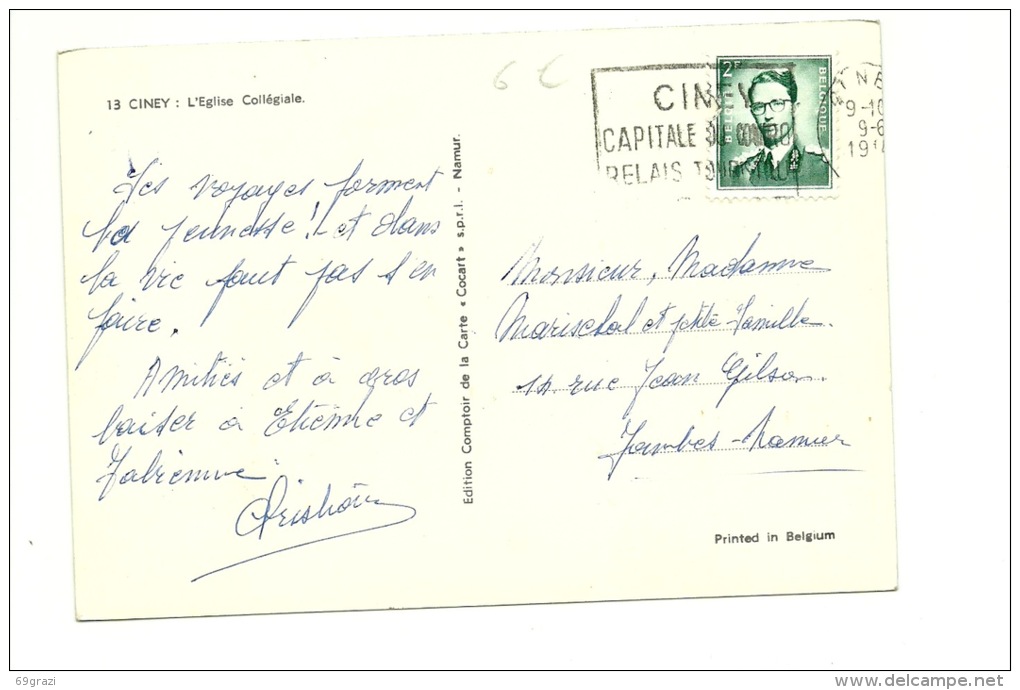 13 CINEY : L'Eglise Collégiale.
6 €
CINEY
CAPITALE DU CONDROZ
RELAIS TOURISTIQUE
2F
BELGIE
BELGIQUE
9-10
9-6
19
Les voyages forment
la jeunesse! et dans
la vie faut pas s'en
faire.
Amitiés et à gros
baiser à Etienne et
Fabienne
Edition Comptoir de la Carte « Cocart » s.p.r.l. - Namur.
Monsieur, Madame
Marischal et ptite famille.
rue Jean Gilson.
Jambes-Namur
Printed in Belgium
69grazi
©delcampe.net